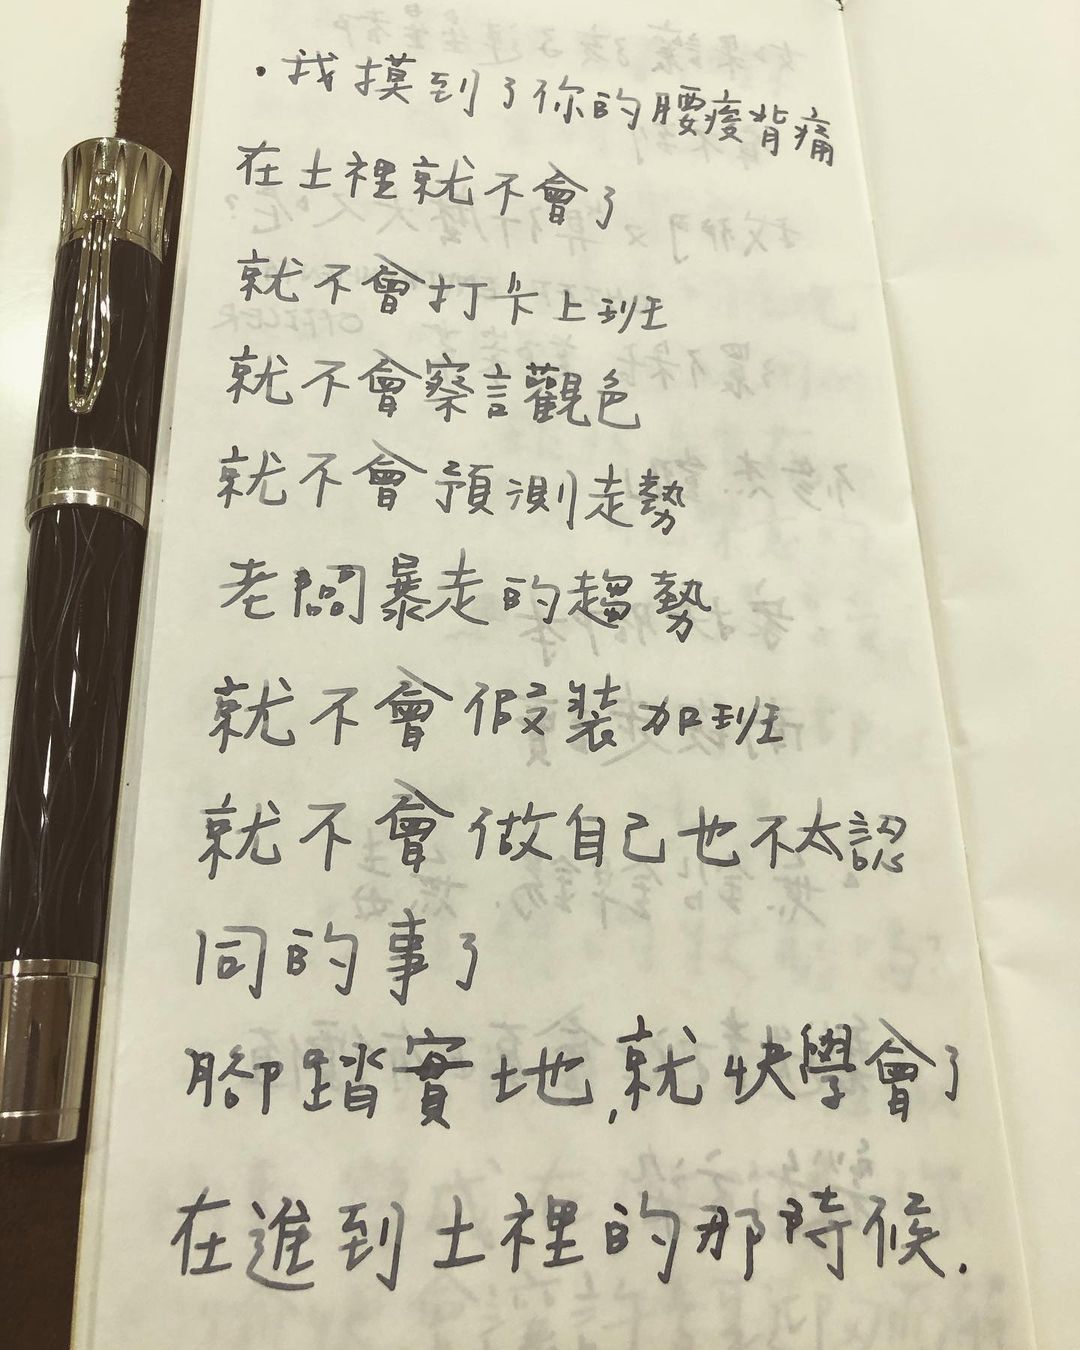 ·我摸到了你的腰痠背痛
在土裡就不會了
就不會打卡上班
就不會察言觀色
就不會預測走勢
老闆暴走的趨勢
就不會假裝加班
就不會做自己也不太認
同的事了
腳踏實地,就快學會了
在進到土裡的那時候.